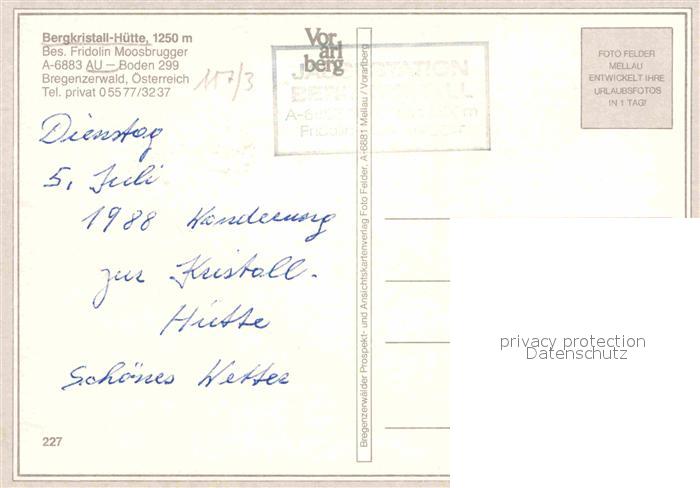 Bergkristall-Hütte, 1250 m
Bes. Fridolin Moosbrugger
A-6883 AU — Boden 299
Bregenzerwald, Österreich
Tel. privat 0 55 77/32 37
117/3
Vor
arl
berg
Dienstag
5. Juli
1988 Wanderung
zur Kristall-
Hütte
Schönes Wetter
227
Bregenzerwälder Prospekt- und Ansichtskartenverlag Foto Felder, A-6881 Mellau / Vorarlberg
FOTO FELDER
MELLAU
ENTWICKELT IHRE
URLAUBSFOTOS
IN 1 TAG!
privacy protection
Datenschutz